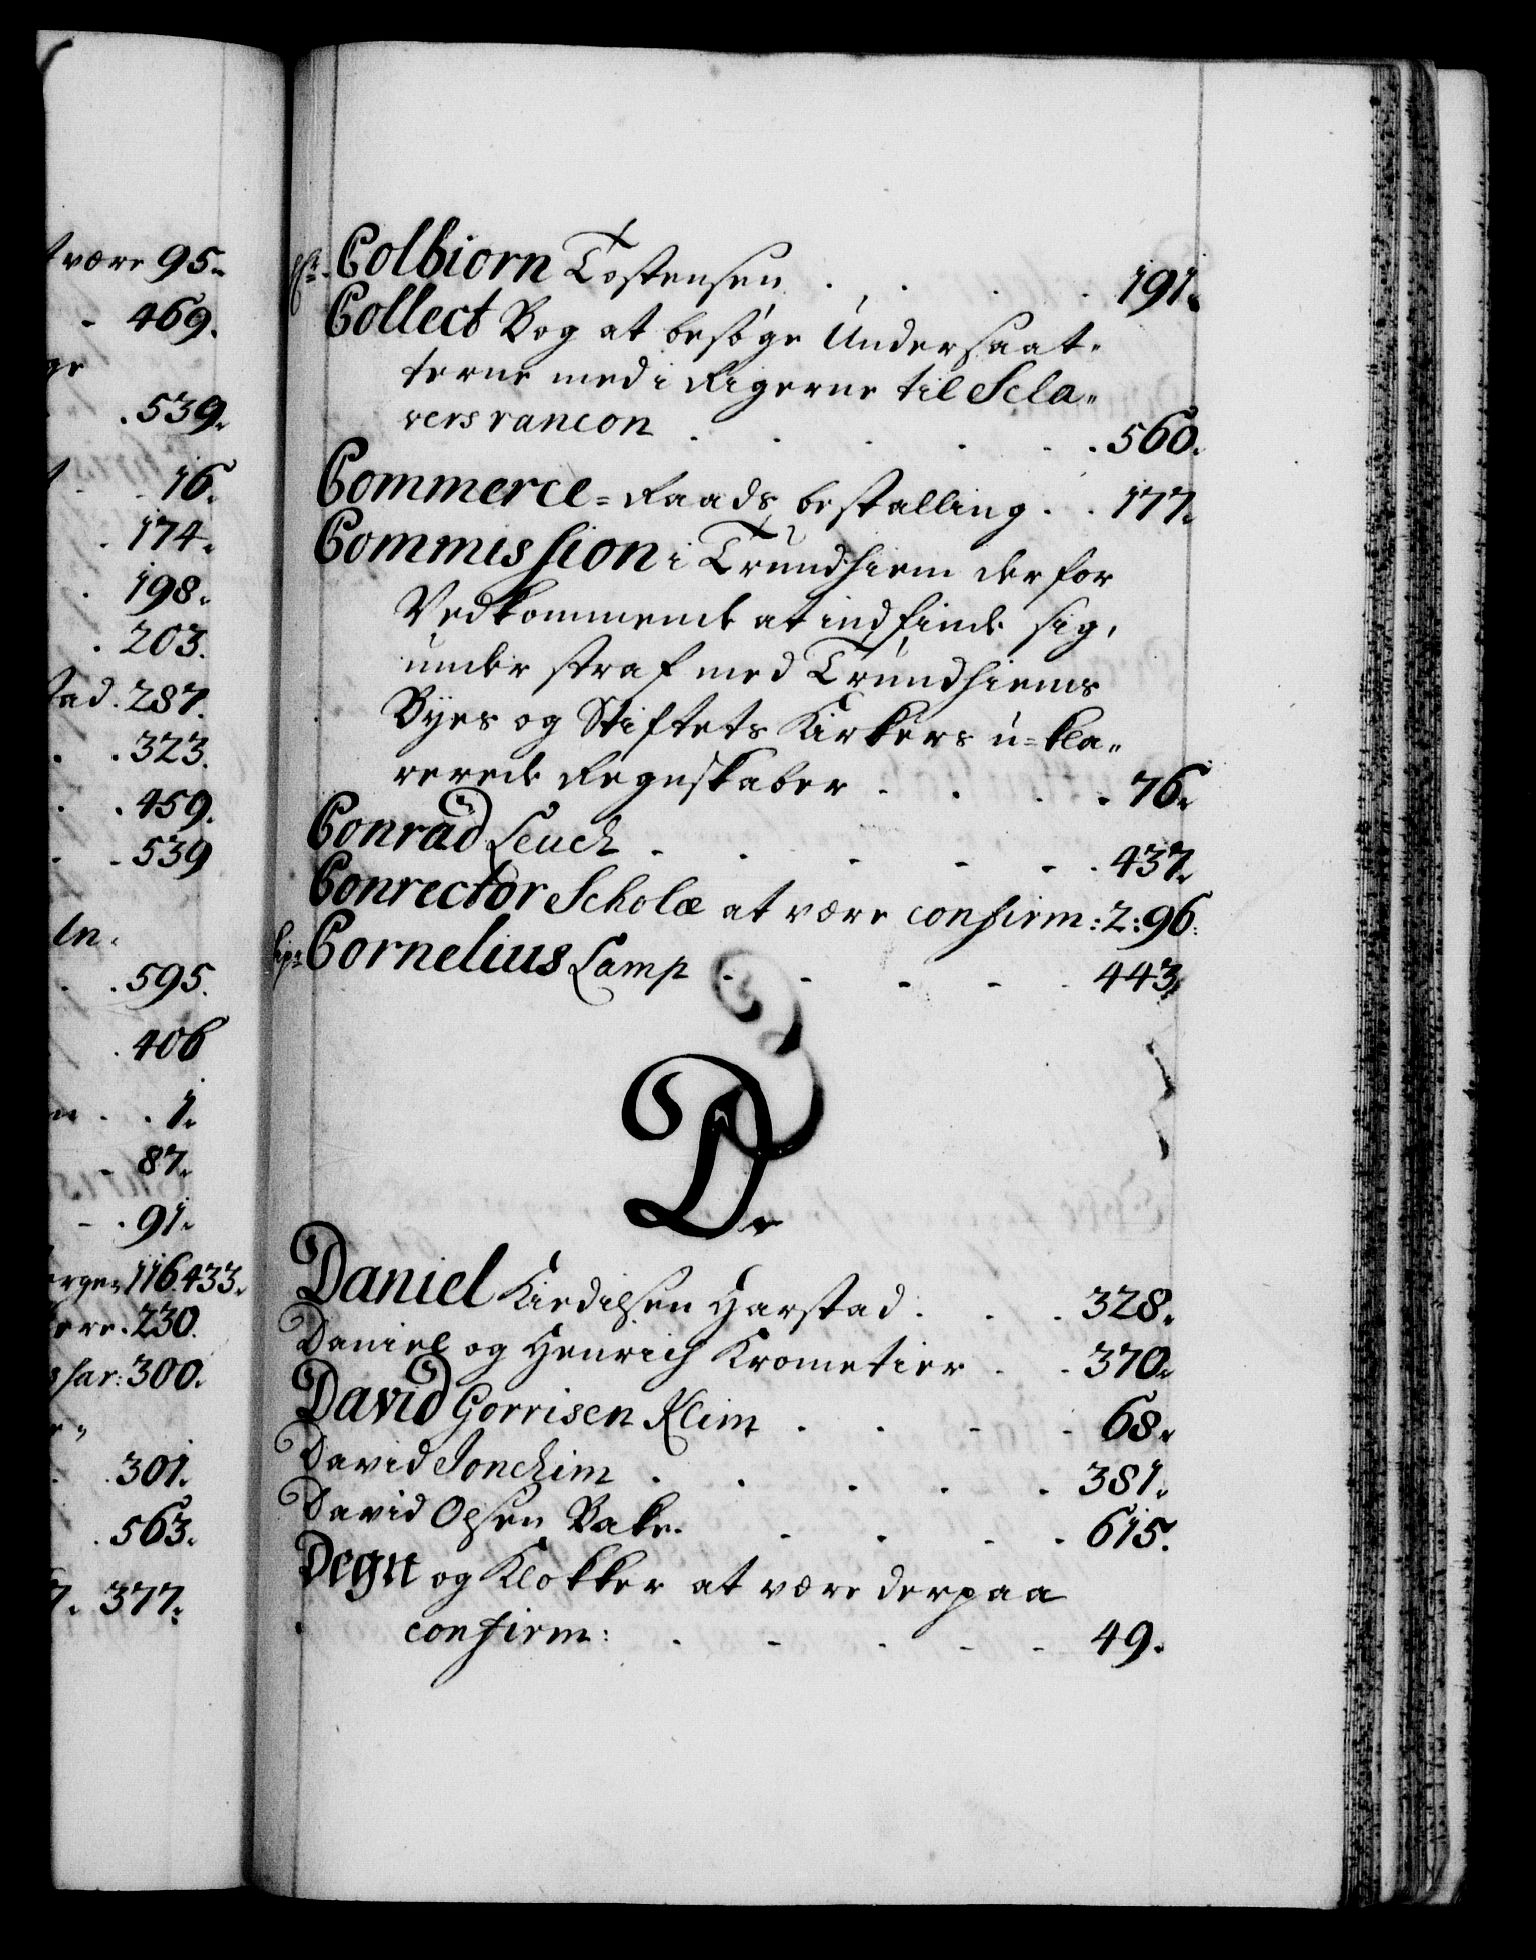 tvære 95.
- 469.
ge
. 539.
. 16.
. 174.
. 198.
. 203.
stad. 287.
. . 323.
. . 459.
- - 539
In.
. . 595.
. 406
. . 1.
- 87.
- . 91.
116.433.
være. 230.
300.
. 301.
. 563.
7. 377.
Colbiorn Tostensen . . . . . 191.
Collect Bog at besøge Undersaat„
terne med i Rigerne til Scla„
vers rancon . . . . . . 560.
Commerce=Raads bestalling . . 177.
Commission i Trundhiem der for
Vedkommende at indfinde sig,
under straf med Trundhiems
Byes og Stiftets Kirkers u=kla„
rerede Regnskaber . . . . 76.
Conrad Leuch . . . . . . 437.
Conrector Scholæ at være confirm: 2:96.
Cornelius Lamp . . . . . 443.
D.
Daniel Kieldsen Harstad . . . 328.
Daniel og Henrich Krometier . . 370.
David Gorrisen Kleim . . . . 68.
David Jochim . . . . . 381.
David Olsen Bake. . . . . 615.
Degn og Klokker at være derpaa
confirm: . . . . . 49.